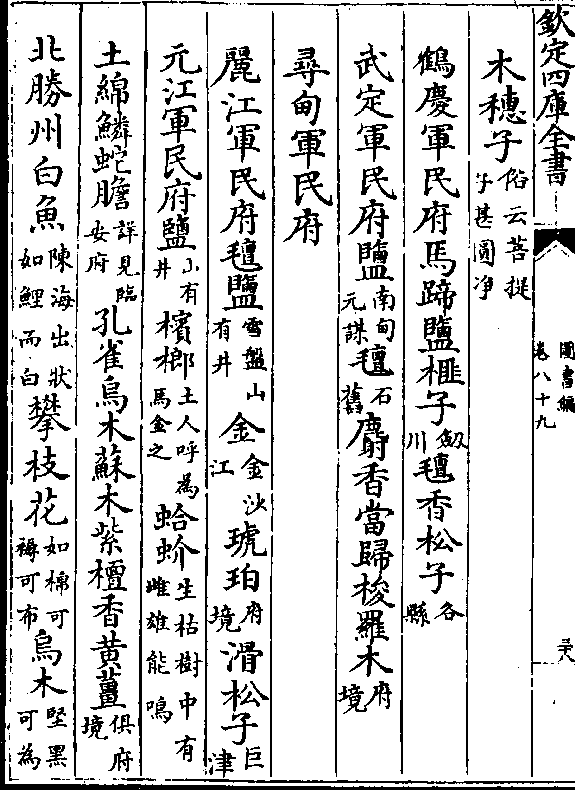 欽定四庫全書
圖書編
卷八十九
三十八
木穗子俗云菩提子甚圓净
鶴慶軍民府馬蹄鹽榧子劔川氊香松子各縣
武定軍民府鹽南甸元謀氊石舊麝香當歸梭羅木府境
尋甸軍民府
麗江軍民府氊鹽雪盤山有井金金沙江琥珀府境滑松子巨津
元江軍民府鹽山有井檳榔土人呼為馬金之蛤蚧生枯樹中有雌雄能鳴
土綿鱗蛇膽詳見臨安府孔雀烏木蘇木紫檀香黄薑俱府境
北勝州白魚陳海出狀如鯉而白攀枝花如棉可褥可布烏木堅黑可為